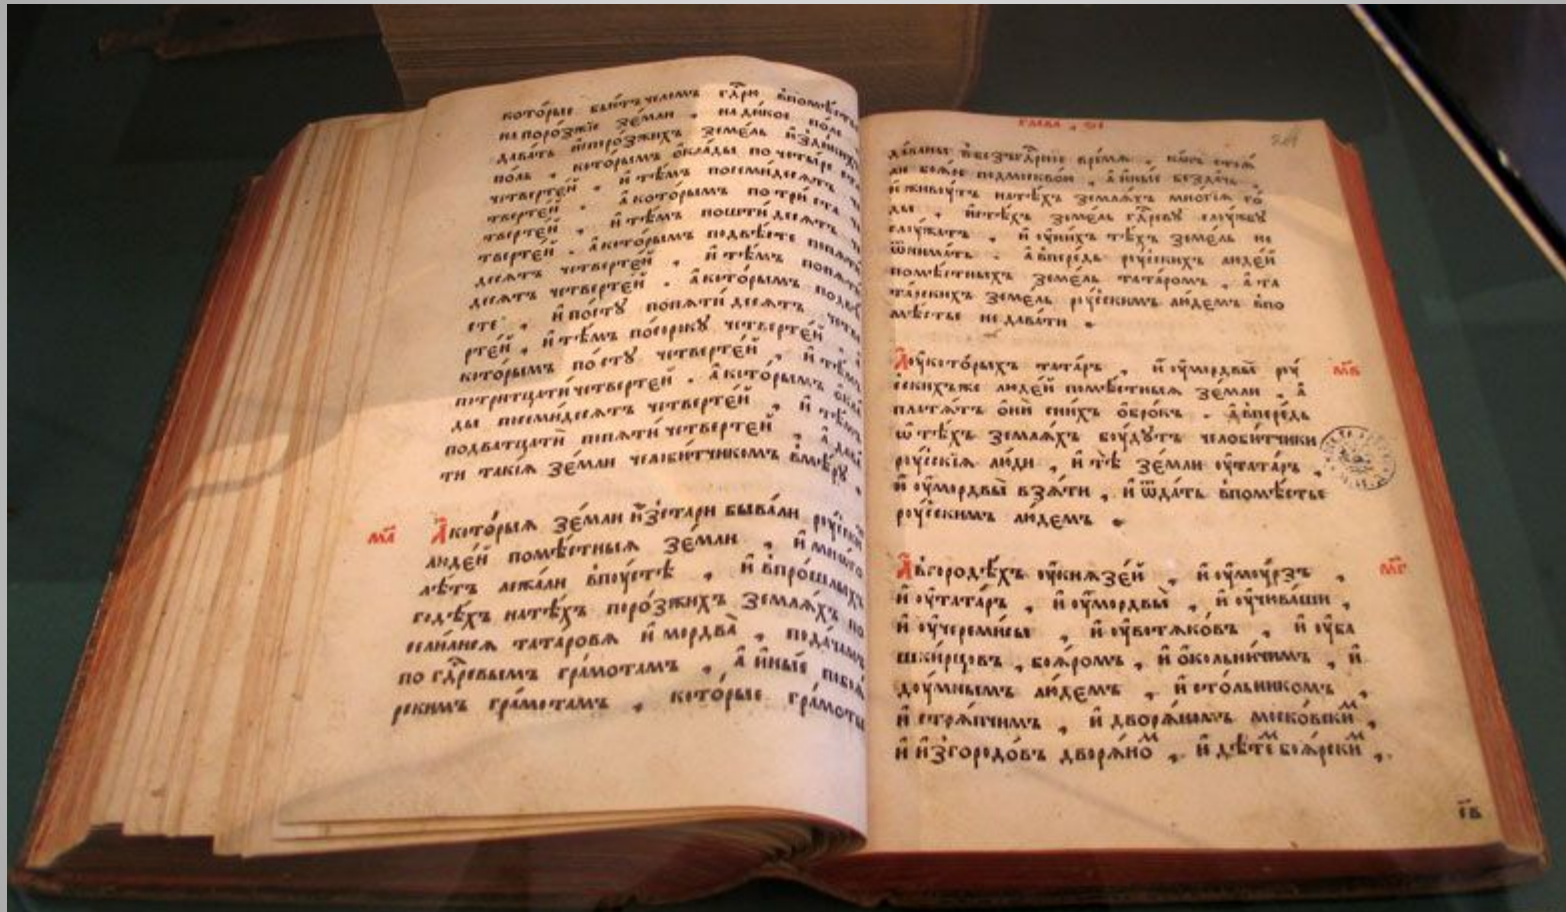 которые бьютъ челомъ гдⷭ҇рю впомѣ
напорозжїе земли , надикое поле
давать изпорозжихъ земель издикихъ
поль , которымъ ѻклады почетыре ста
четвертей , и тѣмъ посемидесятъ че
твертей . а которымъ потриста че
твертей , и тѣмъ пошти десятъ че
твертей . а которымъ подвѣсте попяти
десятъ четвертей , и тѣмъ попяти
десятъ четвертей . а которымъ подву
сте , и посту попяти десятъ четве
ртей , и тѣмъ посороку четвертей , а
которымъ посту четвертей , и тѣмъ
потритцати четвертей . а которымъ ѻкла
ды посемидесятъ четвертей , и тѣмъ
подватцати попяти четвертей , а дава
ти такїя земли челобитчикомъ вмѣру .
ма҃ А которыя земли изстари бывали рꙋсскихъ
людей помѣстныя земли , и много
лѣтъ лежали впꙋстѣ , и впрошлыхъ
годѣхъ натѣхъ порозжихъ земляхъ по
селилися татаровя и мордва , подачамъ
по гдⷭ҇ревымъ грамотамъ , а иные побоя
рскимъ грамотамъ , которые грамоты
глава , ѕ҃і
даваны вбезъгдⷭ҇рное время , какъ стоя
ли бояре подмосквои , а иные бездачь ,
и живоутъ натѣхъ земляхъ многїя го
ды , и стѣхъ земель гдⷭ҇реву слꙋжбꙋ
слоужатъ , и оу нихъ тѣхъ земель не
ѿнимать . а впередь роусскихъ людей
помѣстныхъ земель татаромъ , а та
тарскихъ земель роусскимъ людемъ впо
мѣстье не давати .
А оу которыхъ татаръ , и оу мордвы роу мв҃
сскихъ же людей помѣстныя земли , а
платятъ ѻни снихъ ѻброкъ . а впередь
ѡ тѣхъ земляхъ боудутъ челобитчики
роусскїя люди , и тѣ земли оу татаръ ,
и оу мордвы взяти , и ѿдать впомѣстье
роусскимъ людемъ .
А вгородѣхъ оу князей , и оу моурзъ , мг҃
и оу татаръ , и оу мордвы , и оу чиваши ,
и оу черемисы , и оу вотяковъ , и оу ба
шкирцовъ , бояромъ , и ѻкольничимъ , и
доумнымъ людемъ , и столникомъ ,
и стряпчимъ , и дворяномъ московскиⷨ ,
и изгородовъ дворяноⷨ , и дѣтеⷨ боярскиⷨ ,
св҃